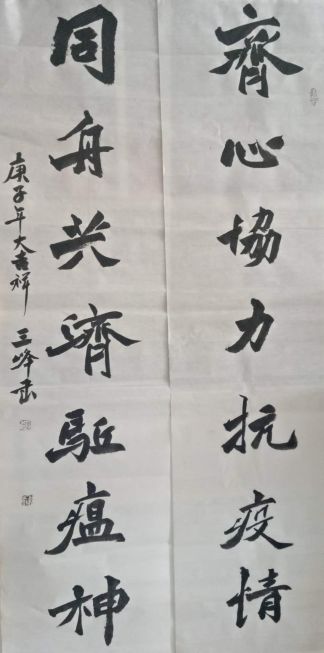 齊心協力抗疫情
同舟共濟駈瘟神
庚子年大吉祥 三峰书